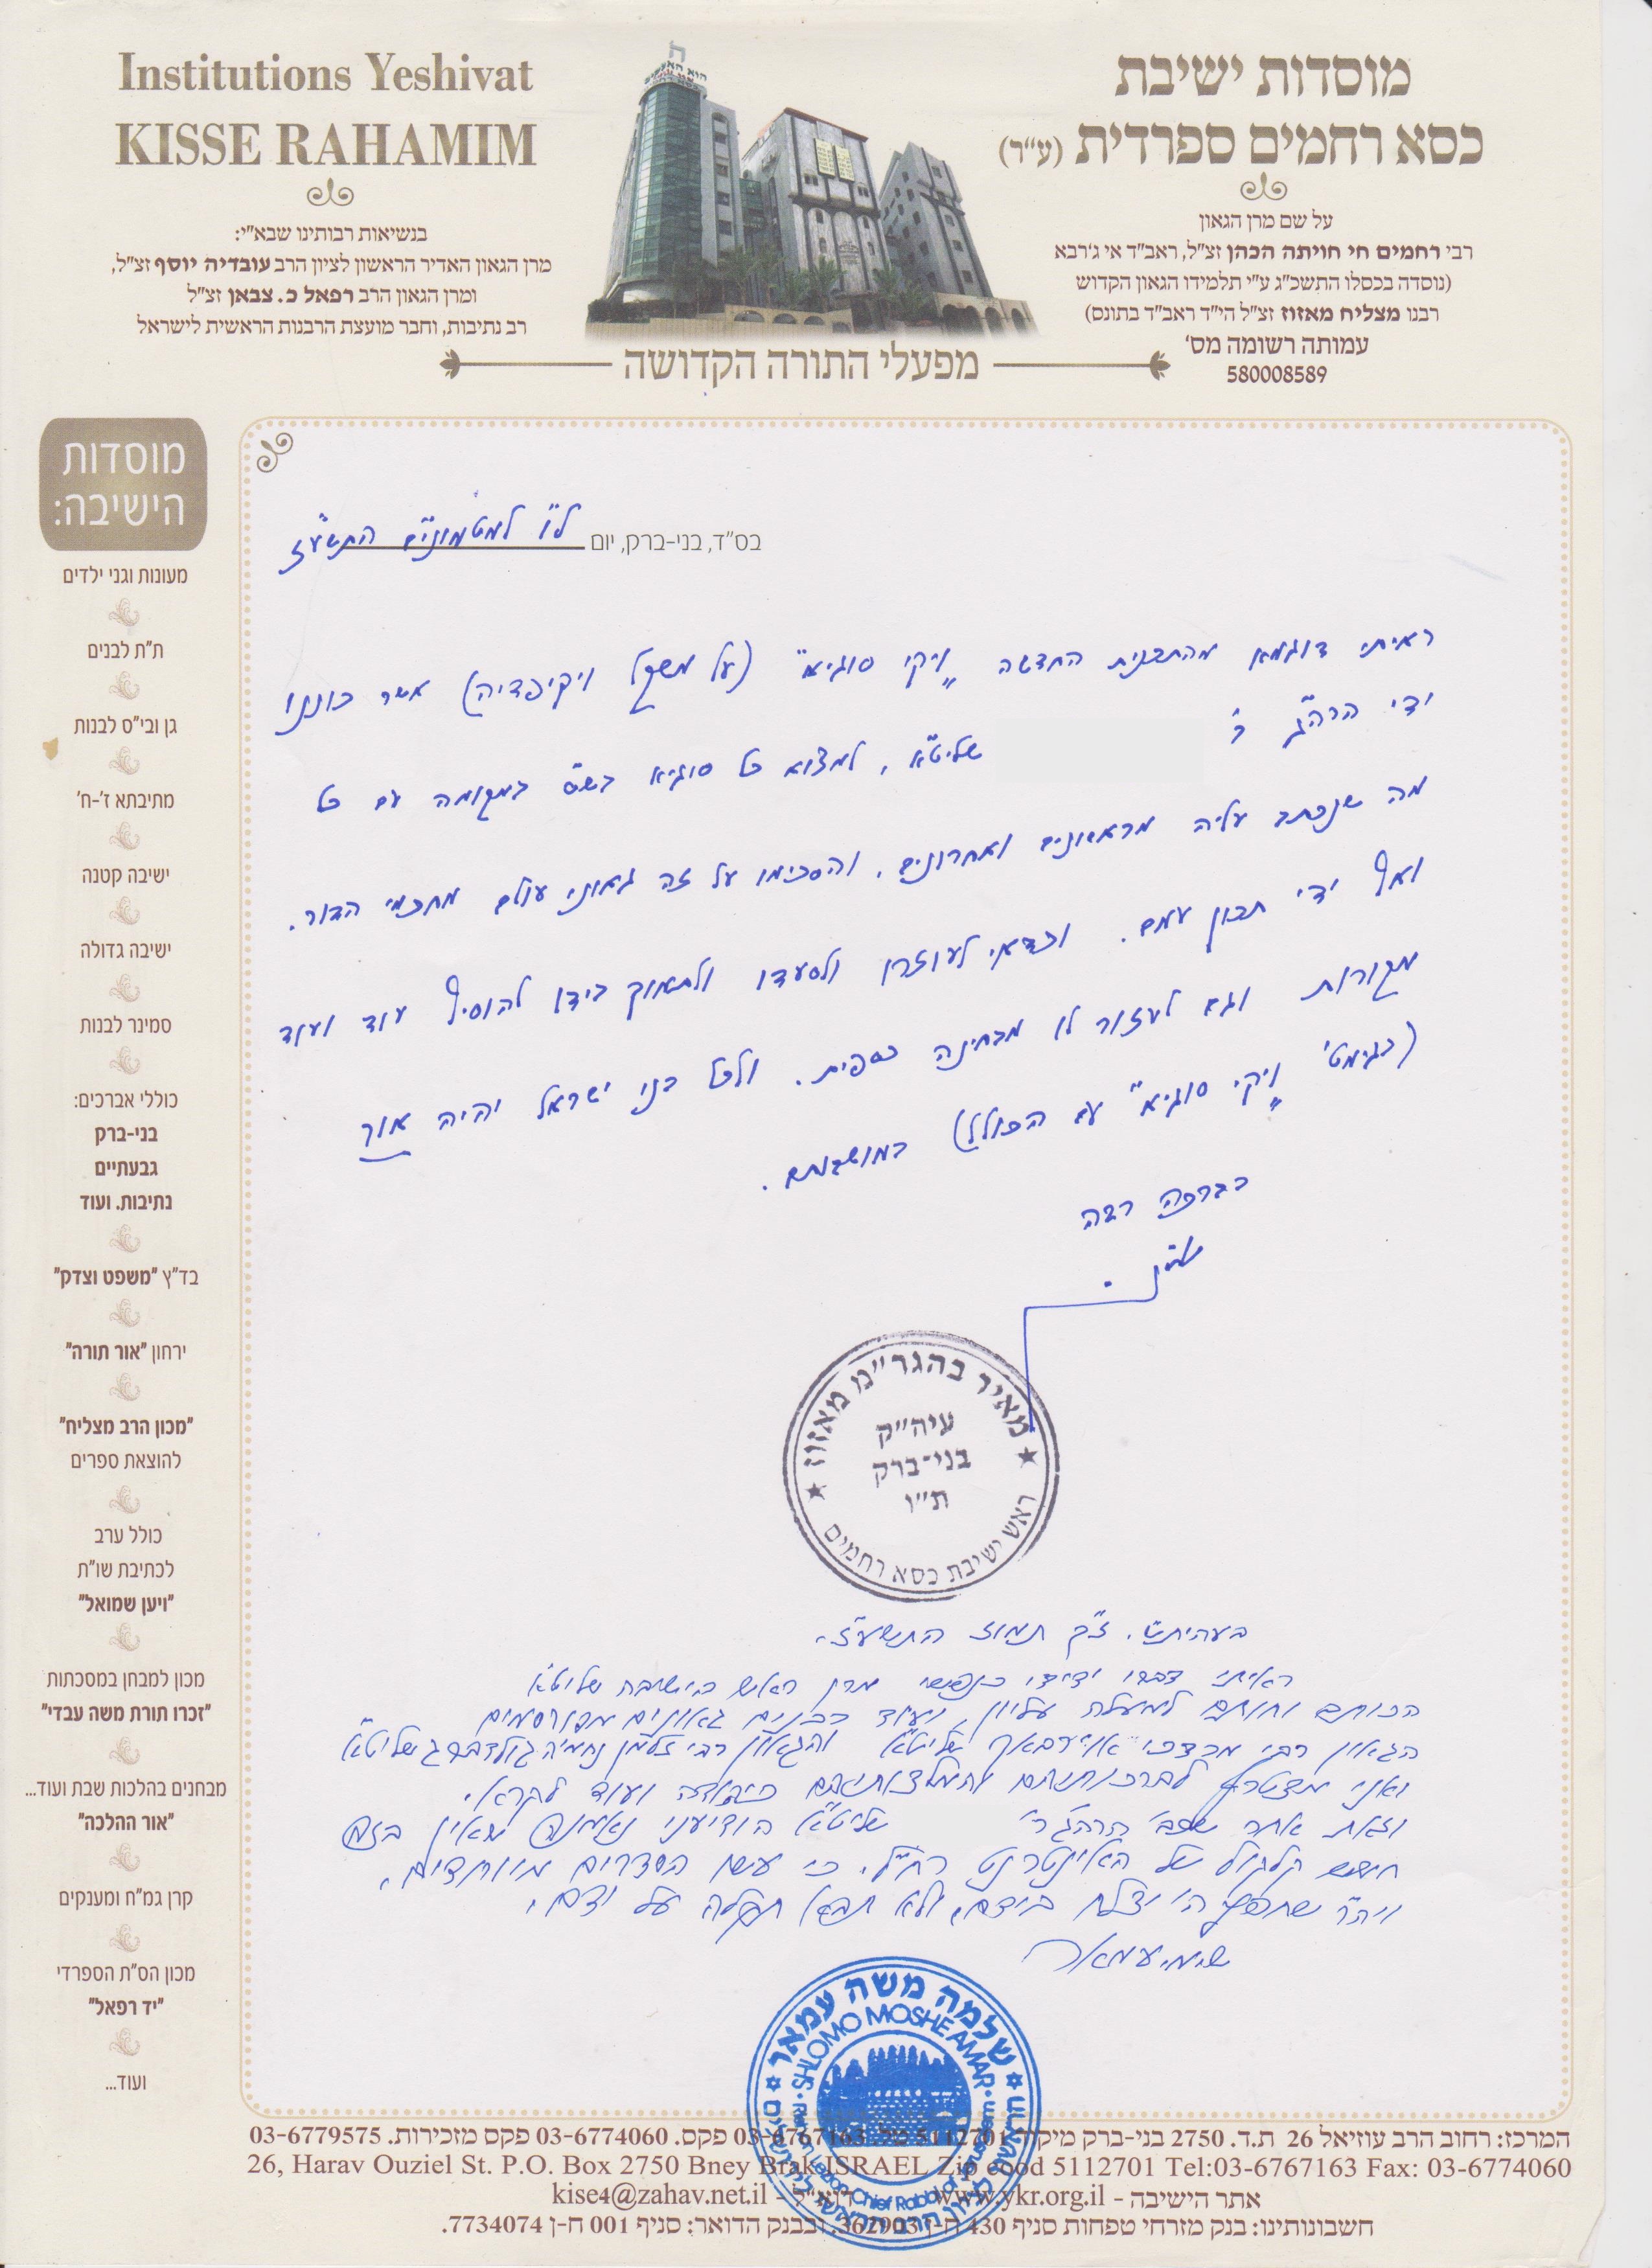 Institutions Yeshivat
KISSE RAHAMIM
בנשיאות רבותינו שבא"י:
מרן הגאון האדיר הראשון לציון הרב עובדיה יוסף זצ"ל,
ומרן הגאון הרב רפאל כ. צבאן זצ"ל
רב נתיבות, וחבר מועצת הרבנות הראשית לישראל
מוסדות ישיבת
כסא רחמים ספרדית (ע"ר)
על שם מרן הגאון
רבי רחמים חי חויתה הכהן זצ"ל, ראב"ד אי ג'רבא
(נוסדה בכסלו התשכ"ג ע"י תלמידו הגאון הקדוש
רבנו מצליח מאזוז זצ"ל הי"ד ראב"ד בתונס)
עמותה רשומה מס'
580008589
מפעלי התורה הקדושה
מוסדות
הישיבה:
מעונות וגני ילדים
ת"ת לבנים
גן ובי"ס לבנות
מתיבתא ז'-ח'
ישיבה קטנה
ישיבה גדולה
סמינר לבנות
כוללי אברכים:
בני-ברק
גבעתיים
נתיבות. ועוד
בד"ץ "משפט וצדק"
ירחון "אור תורה"
"מכון הרב מצליח"
להוצאת ספרים
כולל ערב
לכתיבת שו"ת
"ויען שמואל"
מכון למבחן במסכתות
"זכרו תורת משה עבדי"
מבחנים בהלכות שבת ועוד...
"אור ההלכה"
קרן גמ"ח ומענקים
מכון הס"ת הספרדי
"יד רפאל"
ועוד...
בס"ד, בני-ברק, יום ל"ו למטמוני"ם התשע"ז
ראיתי דוגמא מהתכנית החדשה „ויקי סוגיא" (על משקל ויקיפדיה) אשר כוננו
ידי הרה"ג ר' שליט"א, למצוא כל סוגיא בש"ס במקומה עם כל
מה שנכתב עליה מראשונים ואחרונים. והסכימו על זה גאוני עולם מחכמי הדור.
ואף ידי תכון עמם. וכדאי לעוזרו ולסעדו ולתמוך בידו להוסיף עוד ועוד
מקורות וגם לעזור לו מבחינה כספית. ולכל בני ישראל יהיה אור
(בגימט' „ויקי סוגיא" עם הכולל) במושבותם.
בברכה רבה
מאיר בהגר"מ מאזוז
עיה"ק
בני-ברק
ת"ו
ראש ישיבת כסא רחמים
תמוז התשע"ז
ראיתי דברי ידידי כנפשי מרן ראש הישיבה שליט"א
הכותב וחותם למעלה עליון, ועוד רבנים גאונים מפורסמים
הגאון רבי מרדכי אוירבאך שליט"א והגאון רבי זלמן נחמיה גולדברג שליט"א
ואני מצטרף לברכותיהם
וזאת אחר הרה"ג ר' שליט"א הודיעני נאמנה שאין בזה
קלקול של האינטרנט רח"ל, כי עשו הסדרים מיוחדים,
ויה"ר שחפץ ה' יצלח בידם, ולא תצא תקלה על ידם,
שלמה משה עמאר
SHLOMO MOSHE AMAR
Rishon Lezion Chief Rabbi of Jerusalem
הראשון לציון הרב הראשי לירושלים
המרכז: רחוב הרב עוזיאל 26 ת.ד. 2750 בני-ברק מיקוד 5112701 טל. 03-6767163 פקס. 03-6774060 פקס מזכירות. 03-6779575
26, Harav Ouziel St. P.O. Box 2750 Bney Brak ISRAEL Zip cood 5112701 Tel:03-6767163 Fax: 03-6774060
אתר הישיבה - www.ykr.org.il דוא"ל - kise4@zahav.net.il
חשבונותינו: בנק מזרחי טפחות סניף 430 ח-ן 362903. ובבנק הדואר: סניף 001 ח-ן 7734074.